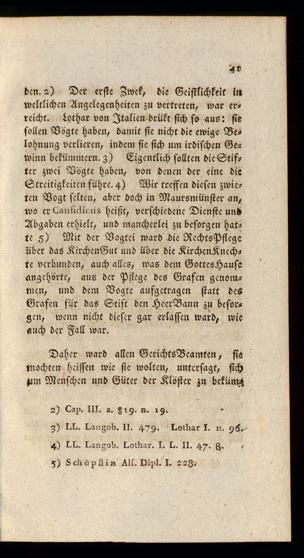 41
den. 2) Der erste Zwek, die Geistlichkeit in
weltlichen Angelegenheiten zu vertreten, war er-
reicht. Lothar von Italien drükt sich so aus: sie
sollen Vögte haben, damit sie nicht die ewige Be-
lohnung verlieren, indem sie sich um irdischen Ge-
winn bekümmern. 3) Eigentlich sollten die Stif-
ter zwei Vögte haben, von denen der eine die
Streitigkeiten führe. 4) Wir treffen diesen zwie-
ten Vogt selten, aber doch in Maursmünster an,
wo er Causidicus heißt, verschiedene Dienste und
Abgaben erhielt, und mancherlei zu besorgen hat-
te 5) Mit der Vogtei ward die RechtsPflege
über das KirchenGut und über die KirchenKnech-
te verbunden, auch alles, was dem GottesHause
angehörte, aus der Pflege des Grafen genom-
men, und dem Vogte aufgetragen statt des
Grafen für das Stift den HeerBann zu besor-
gen, wenn nicht dieser gar erlassen ward, wie
auch der Fall war.
Daher ward allen GerichtsBeamten, sie
mochten heissen wie sie wolten, untersagt, sich
um Menschen und Güter der Klöster zu beküm-
2) Cap. III. a. 819. n. 19.
3) LL. Langob. II. 479. Lothar I. n. 96.
4) LL. Langob. Lothar. I. L. II. 47. 8.
5) Schöpflin Als. Dipl. I. 228.